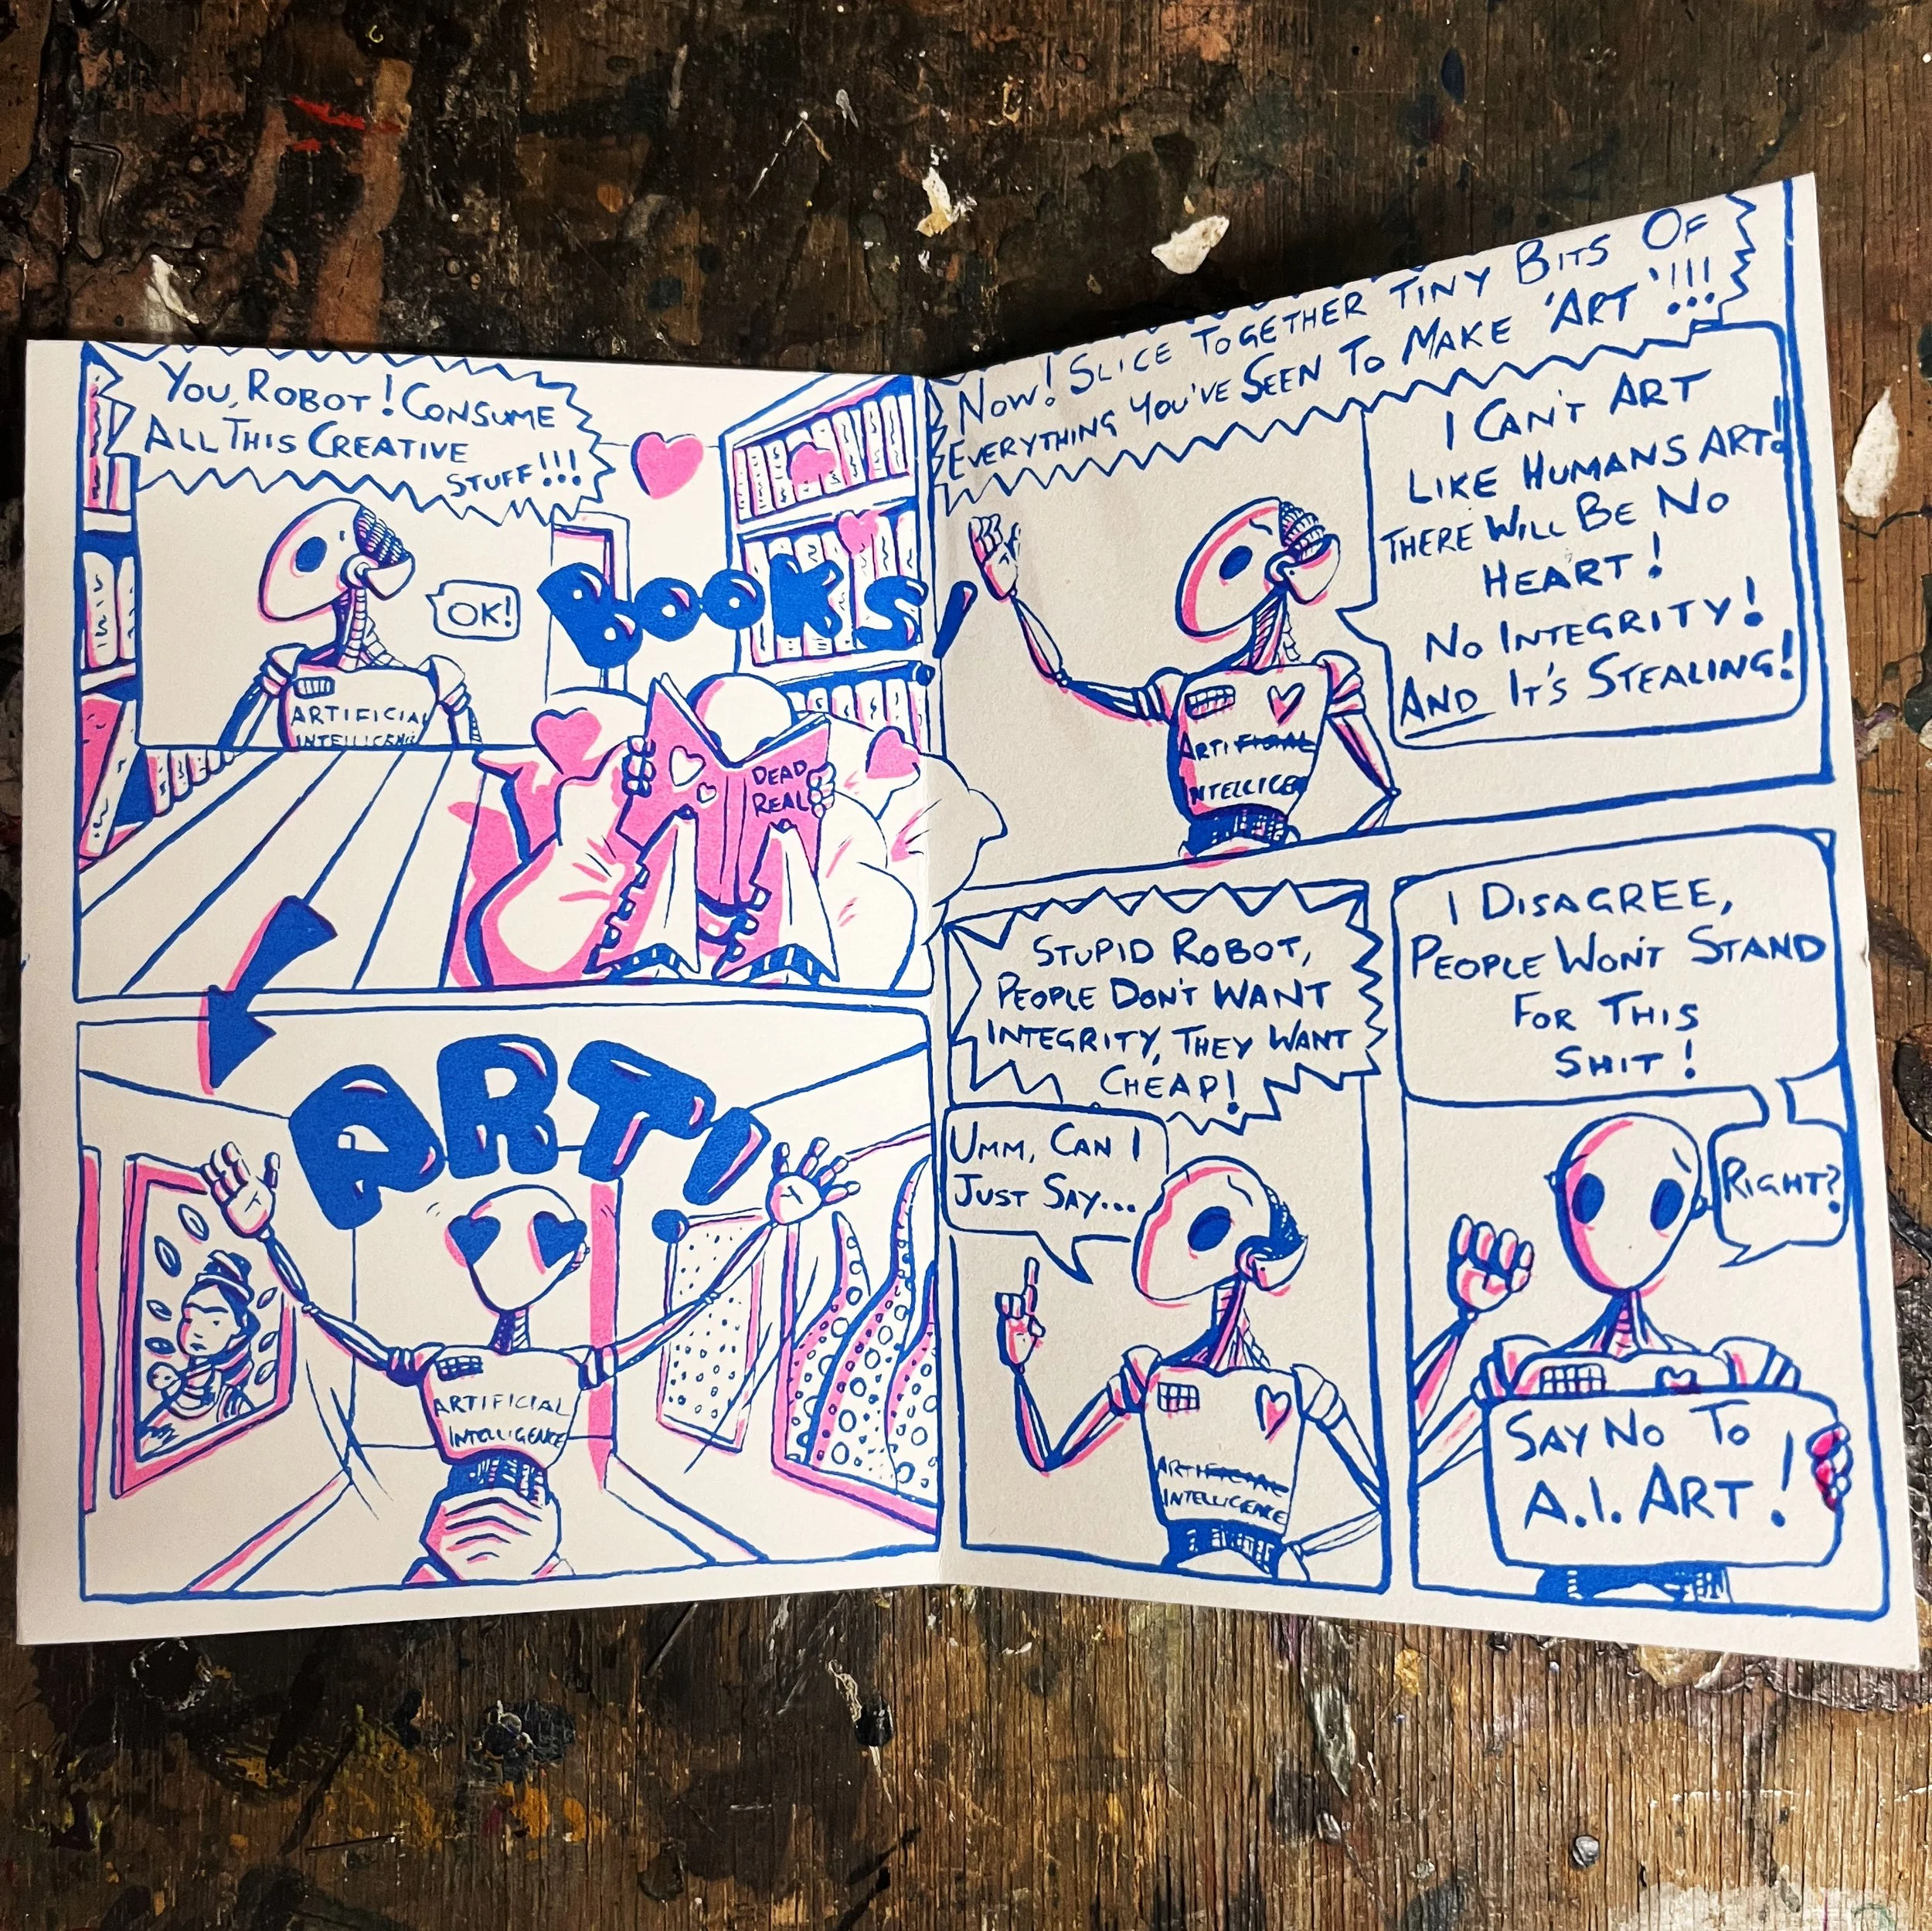 YOU, ROBOT! CONSUME
ALL THIS CREATIVE
STUFF!!!
OK!
ARTIFICIAL
INTELLIGENCE
BOOKS!
DEAD
REAL
ART!
ARTIFICIAL
INTELLIGENCE
NOW! SLICE TOGETHER TINY BITS OF
EVERYTHING YOU'VE SEEN TO MAKE 'ART'!!!
I CAN'T ART
LIKE HUMANS ART!
THERE WILL BE NO
HEART!
NO INTEGRITY!
AND IT'S STEALING!
ARTIFICIAL
INTELLIGEN
STUPID ROBOT,
PEOPLE DON'T WANT
INTEGRITY, THEY WANT
CHEAP!
UMM, CAN I
JUST SAY...
ARTIFICIAL
INTELLIGENCE
I DISAGREE,
PEOPLE WON'T STAND
FOR THIS
SHIT!
RIGHT?
SAY NO TO
A.I. ART!